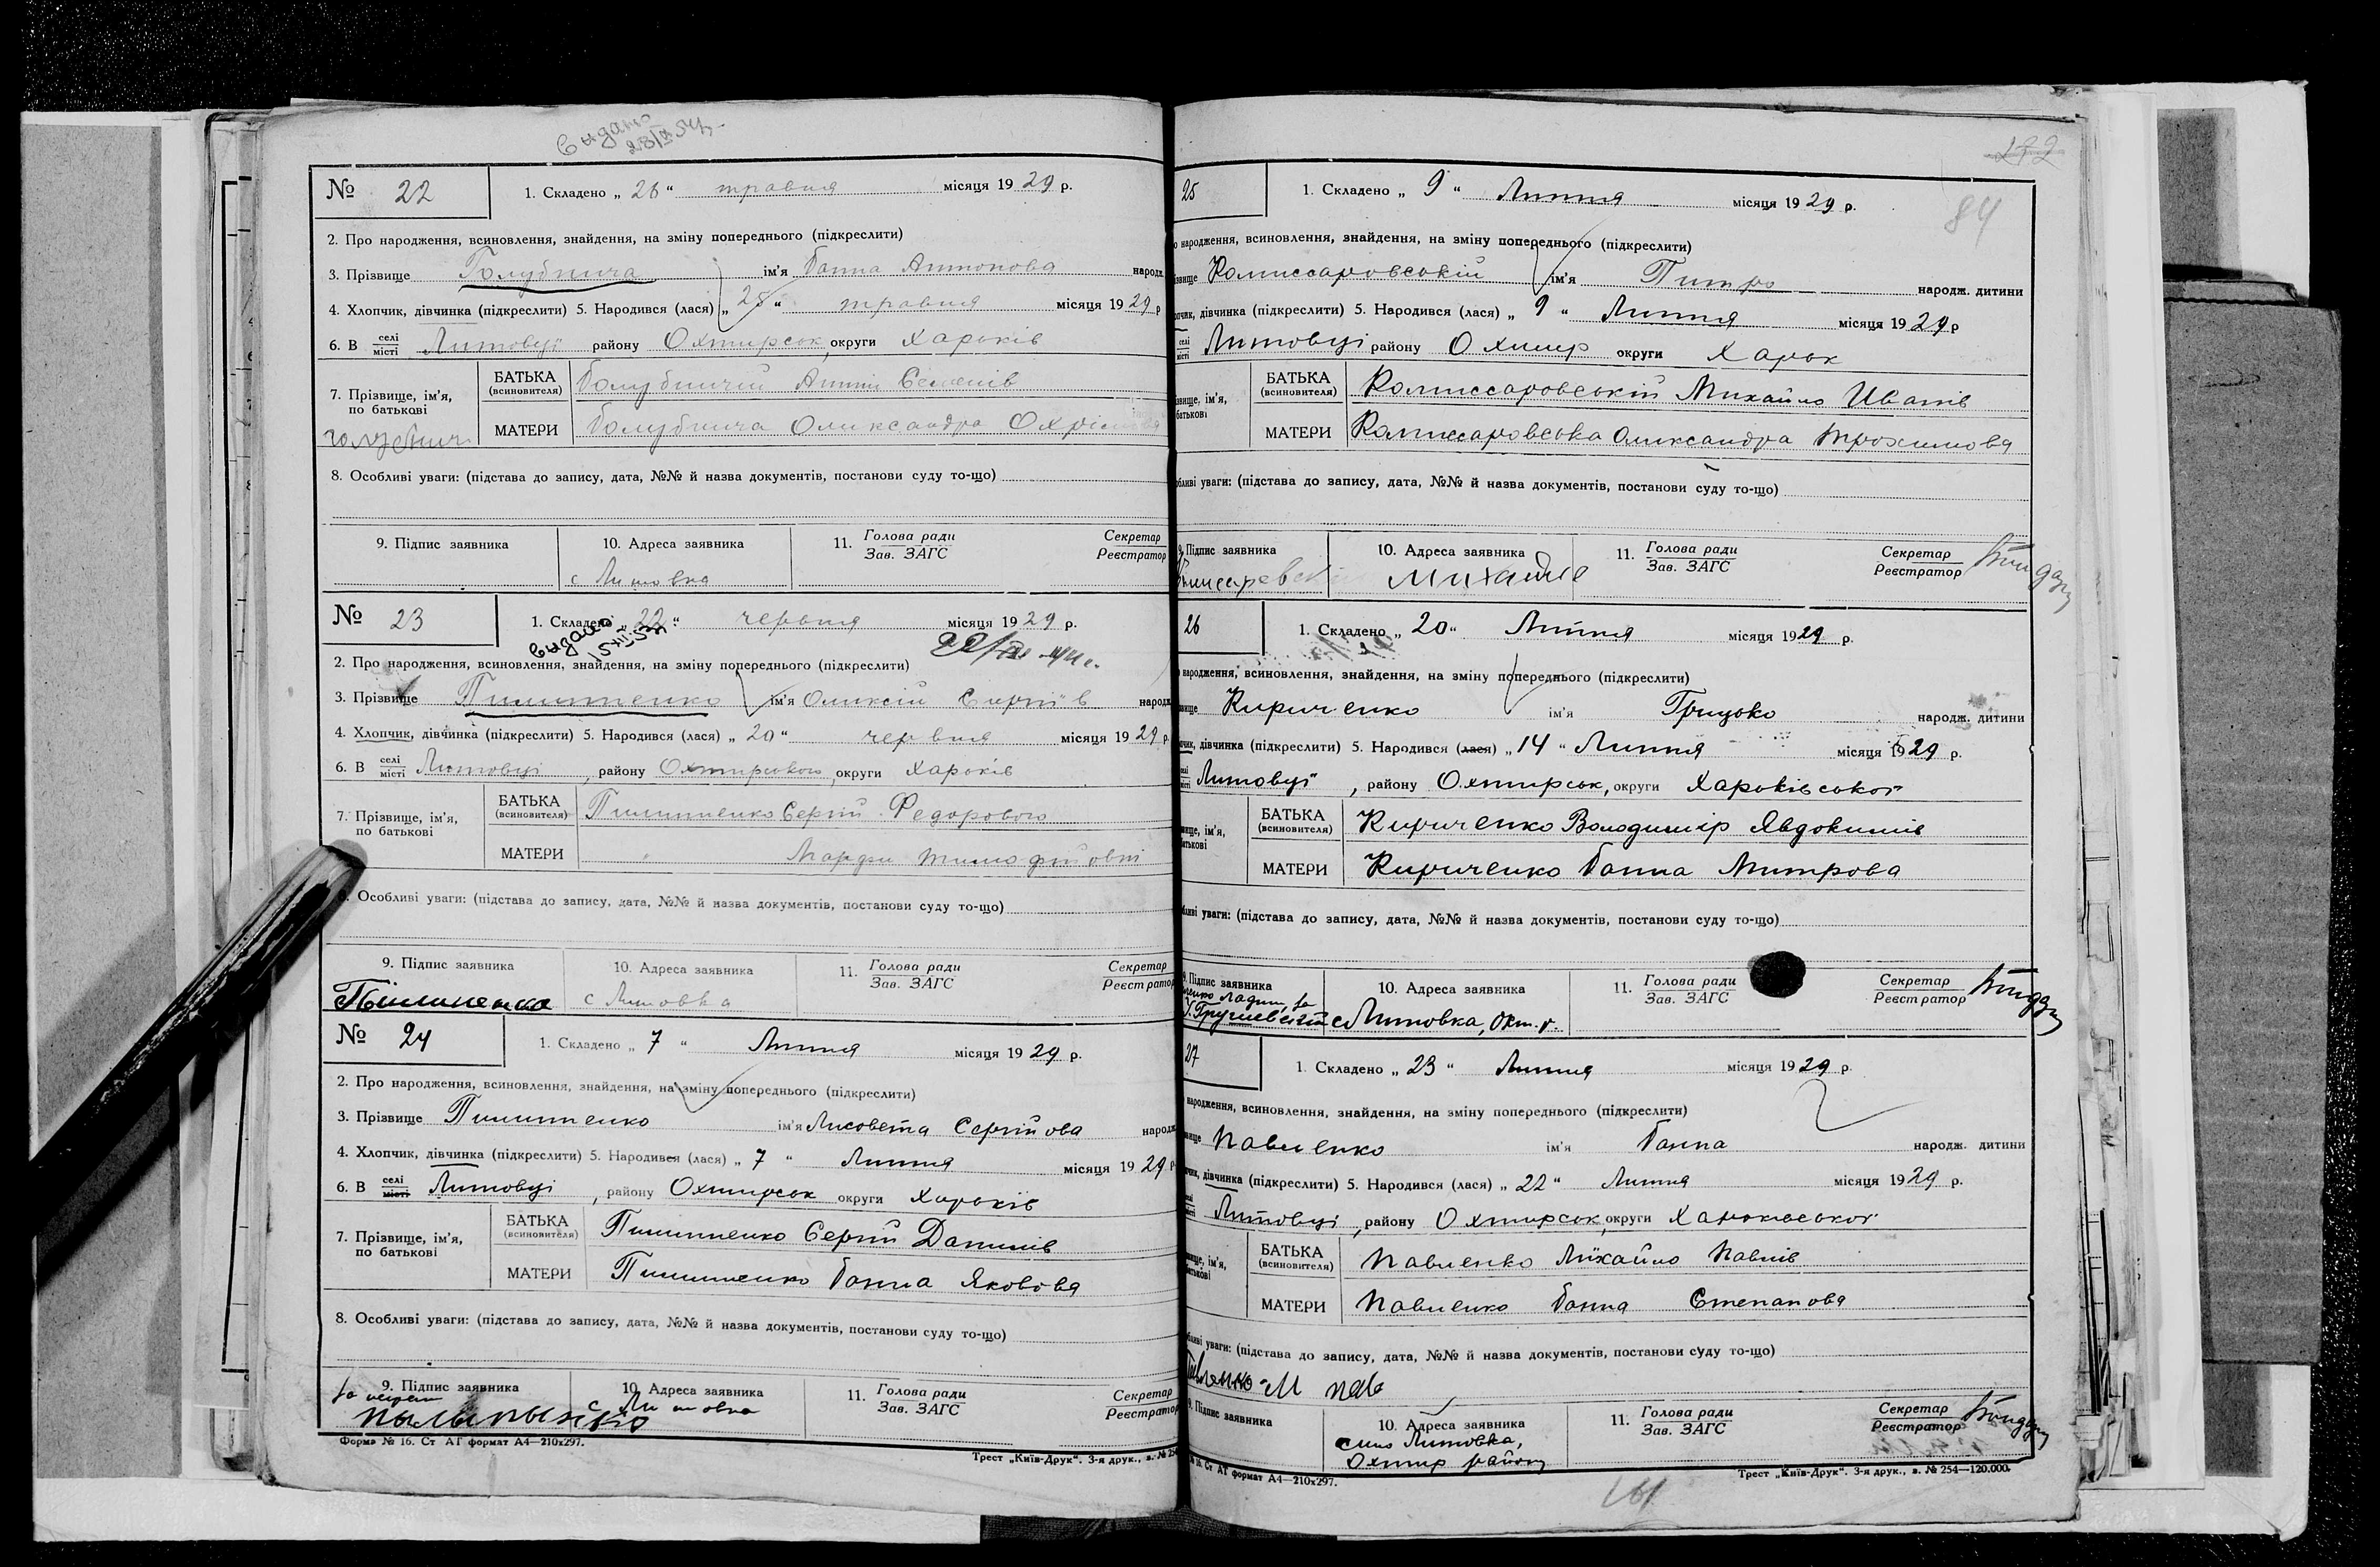 Видано
28/IX 54 р.
№ 22
1. Складено „ 26 “ травня місяця 19 29 р.
2. Про народження, всиновлення, знайдення, на зміну попереднього (підкреслити)
3. Прізвище Голубнича ім'я Ганна Антонова народж.
4. Хлопчик, дівчинка (підкреслити) 5. Народився (лася) „ 25 “ травня місяця 19 29 р
6. В селі місті Литовці району Охтирськ, округи Харьків
7. Прізвище, ім'я, по батькові
БАТЬКА (всиновителя) Голубничій Антін Семенів
МАТЕРИ Голубнича Олександра
8. Особливі уваги: (підстава до запису, дата, №№ й назва документів, постанови суду то-що)
9. Підпис заявника 10. Адреса заявника 11. Голова ради Зав. ЗАГС Секретар Реєстратор
с Литовка
№ 23
1. Складено „ 22 “ червня місяця 19 29 р.
Видано
2. Про народження, всиновлення, знайдення, на зміну попереднього (підкреслити)
3. Прізвище Пилипенко ім'я Олексій Сергіїв народж
4. Хлопчик, дівчинка (підкреслити) 5. Народився (лася) „ 20 “ червня місяця 19 29 р.
6. В селі місті Литовці, району Охтирського, округи Харьків
7. Прізвище, ім'я, по батькові
БАТЬКА (всиновителя) Пилипенко Сергій Федорового
МАТЕРИ " Марфи Тимофійовні
8. Особливі уваги: (підстава до запису, дата, №№ й назва документів, постанови суду то-що)
9. Підпис заявника 10. Адреса заявника 11. Голова ради Зав. ЗАГС Секретар Реєстратор
Пилипенко с Литовка
№ 24
1. Складено „ 7 “ Липня місяця 19 29 р.
2. Про народження, всиновлення, знайдення, на зміну попереднього (підкреслити)
3. Прізвище Пилипенко ім'я Лисовета Сергійова народж
4. Хлопчик, дівчинка (підкреслити) 5. Народився (лася) „ 7 “ Липня місяця 19 29 р
6. В селі місті Литовці, району Охтирськ округи Харьків
7. Прізвище, ім'я, по батькові
БАТЬКА (всиновителя) Пилипенко Сергій Данилів
МАТЕРИ Пилипенко Ганна Яковова
8. Особливі уваги: (підстава до запису, дата, №№ й назва документів, постанови суду то-що)
9. Підпис заявника 10. Адреса заявника 11. Голова ради Зав. ЗАГС Секретар Реєстратор
с Литовка
Форма № 16. Ст АТ формат А4—210х297.
Трест „Київ-Друк“. 3-я друк., з. № 254
84
25
1. Складено „ 9 “ Липня місяця 19 29 р.
народження, всиновлення, знайдення, на зміну попереднього (підкреслити)
Комиссаровський ім'я Питро народж. дитини
дівчинка (підкреслити) 5. Народився (лася) „ 9 “ Липня місяця 19 29 р
Литовці району Охтир округи Харьк
БАТЬКА (всиновителя) Комиссаровський Михайло Иванів
МАТЕРИ Комиссаровська Олександра Трохимова
уваги: (підстава до запису, дата, №№ й назва документів, постанови суду то-що)
Підпис заявника 10. Адреса заявника 11. Голова ради Зав. ЗАГС Секретар Реєстратор
26
1. Складено „ 20 “ Липня місяця 19 29 р.
народження, всиновлення, знайдення, на зміну попереднього (підкреслити)
Кириченко ім'я Грицько народж. дитини
дівчинка (підкреслити) 5. Народився (лася) „ 14 “ Липня місяця 19 29 р.
Литовці, району Охтирськ, округи Харьківської
БАТЬКА (всиновителя) Кириченко Володимір Явдокимів
МАТЕРИ Кириченко Ганна Митрова
уваги: (підстава до запису, дата, №№ й назва документів, постанови суду то-що)
Підпис заявника 10. Адреса заявника 11. Голова ради Зав. ЗАГС Секретар Реєстратор
с Литовка, Охт. р.
27
1. Складено „ 23 “ Липня місяця 19 29 р.
народження, всиновлення, знайдення, на зміну попереднього (підкреслити)
Павленко ім'я Ганна народж. дитини
дівчинка (підкреслити) 5. Народився (лася) „ 22 “ Липня місяця 19 29 р.
Литовці, району Охтирськ, округи Харьківської
БАТЬКА (всиновителя) Павленко Михайло Павлів
МАТЕРИ Павленко Ганна Степанова
уваги: (підстава до запису, дата, №№ й назва документів, постанови суду то-що)
Підпис заявника 10. Адреса заявника 11. Голова ради Зав. ЗАГС Секретар Реєстратор
село Литовка,
Охтир району
Ст АТ формат А4—210х297.
Трест „Київ-Друк“. 3-я друк., з. № 254—120.000.